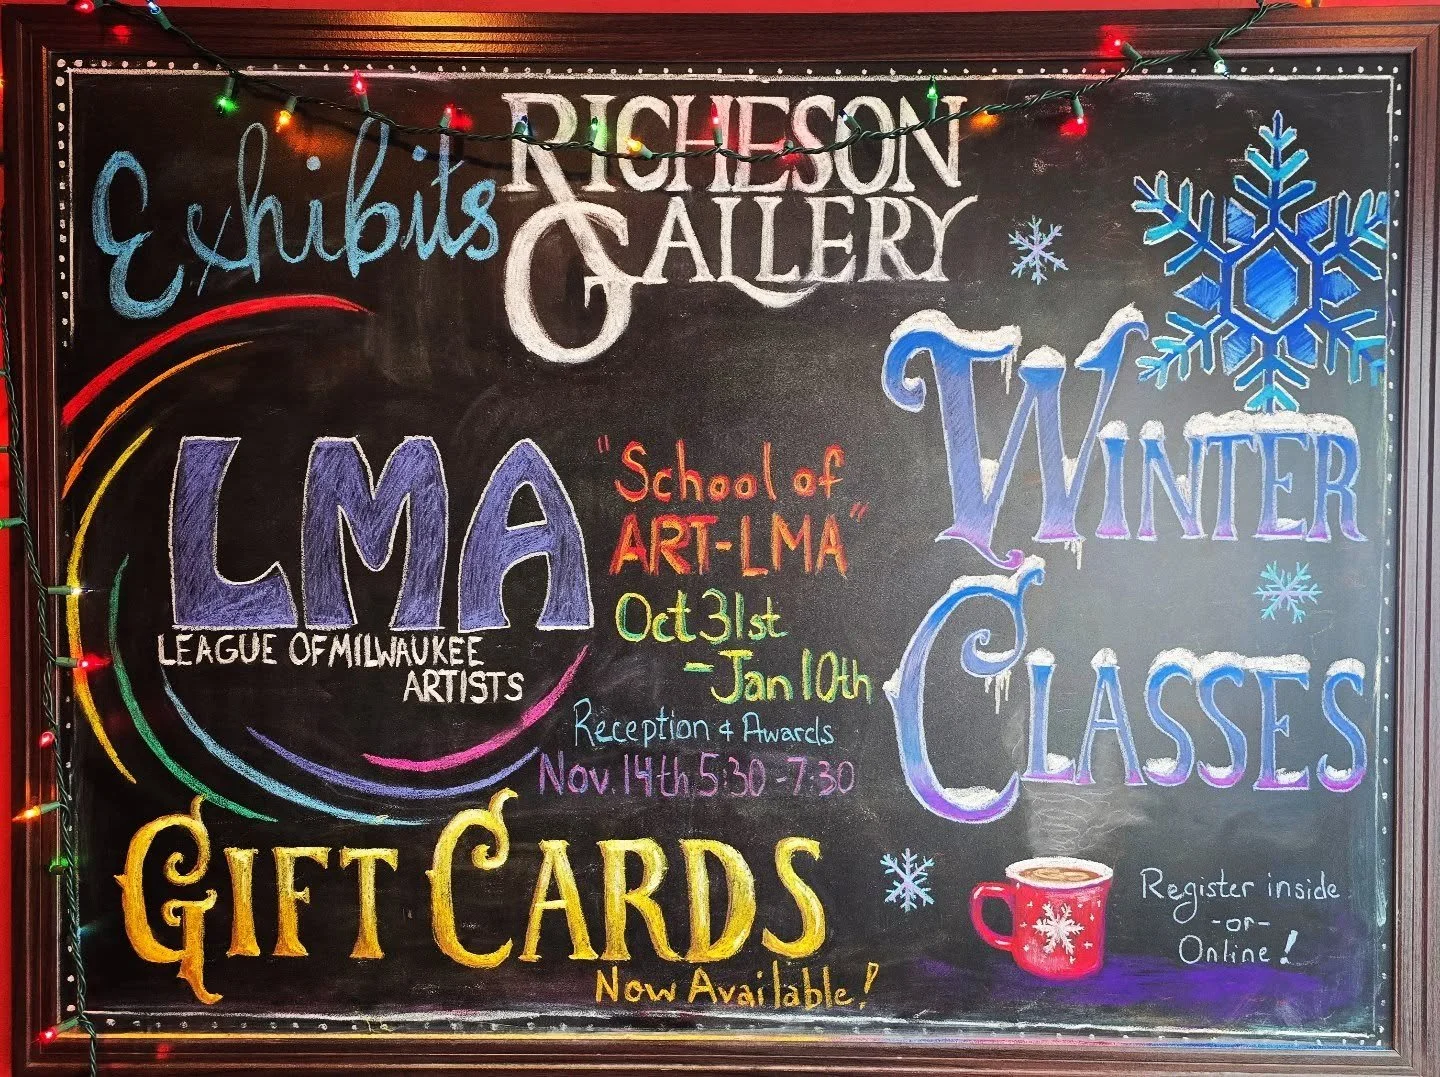 Exhibits
RICHESON
GALLERY
LMA
LEAGUE OF MILWAUKEE
ARTISTS
"School of
ART-LMA"
Oct 31st
-Jan 10th
Reception & Awards
Nov. 14th 5:30-7:30
GIFT CARDS
Now Available!
WINTER
CLASSES
Register inside
-or-
Online!